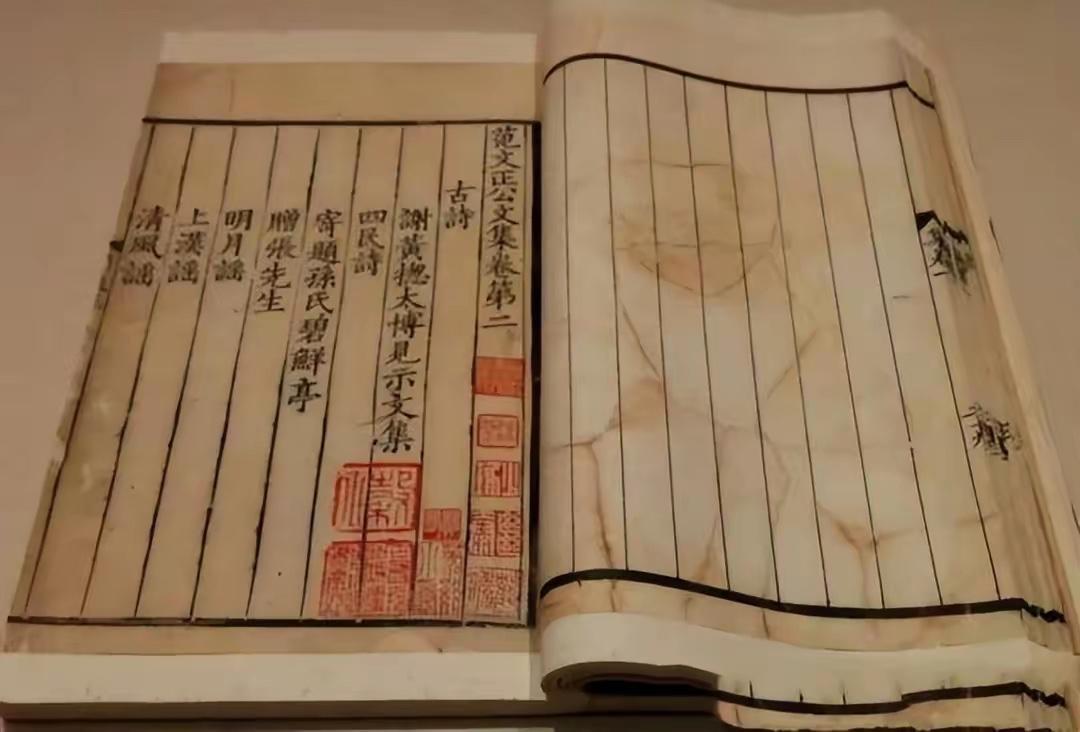 范文正公文集卷第二
古詩
謝黃揔太博見示文集
四民詩
寄題孫氏碧鮮亭
贈張先生
明月謠
上漢謠
清風謠